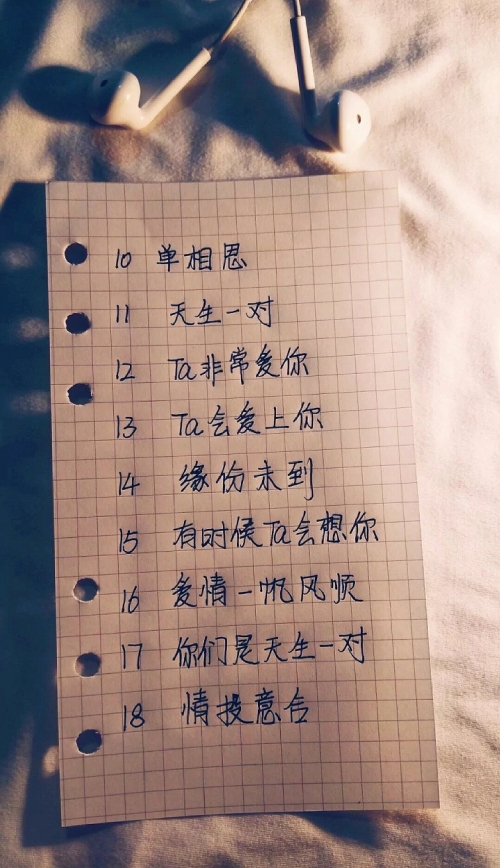 10 单相思
11 天生一对
12 Ta非常爱你
13 Ta会爱上你
14 缘份未到
15 有时候Ta会想你
16 爱情一帆风顺
17 你们是天生一对
18 情投意合